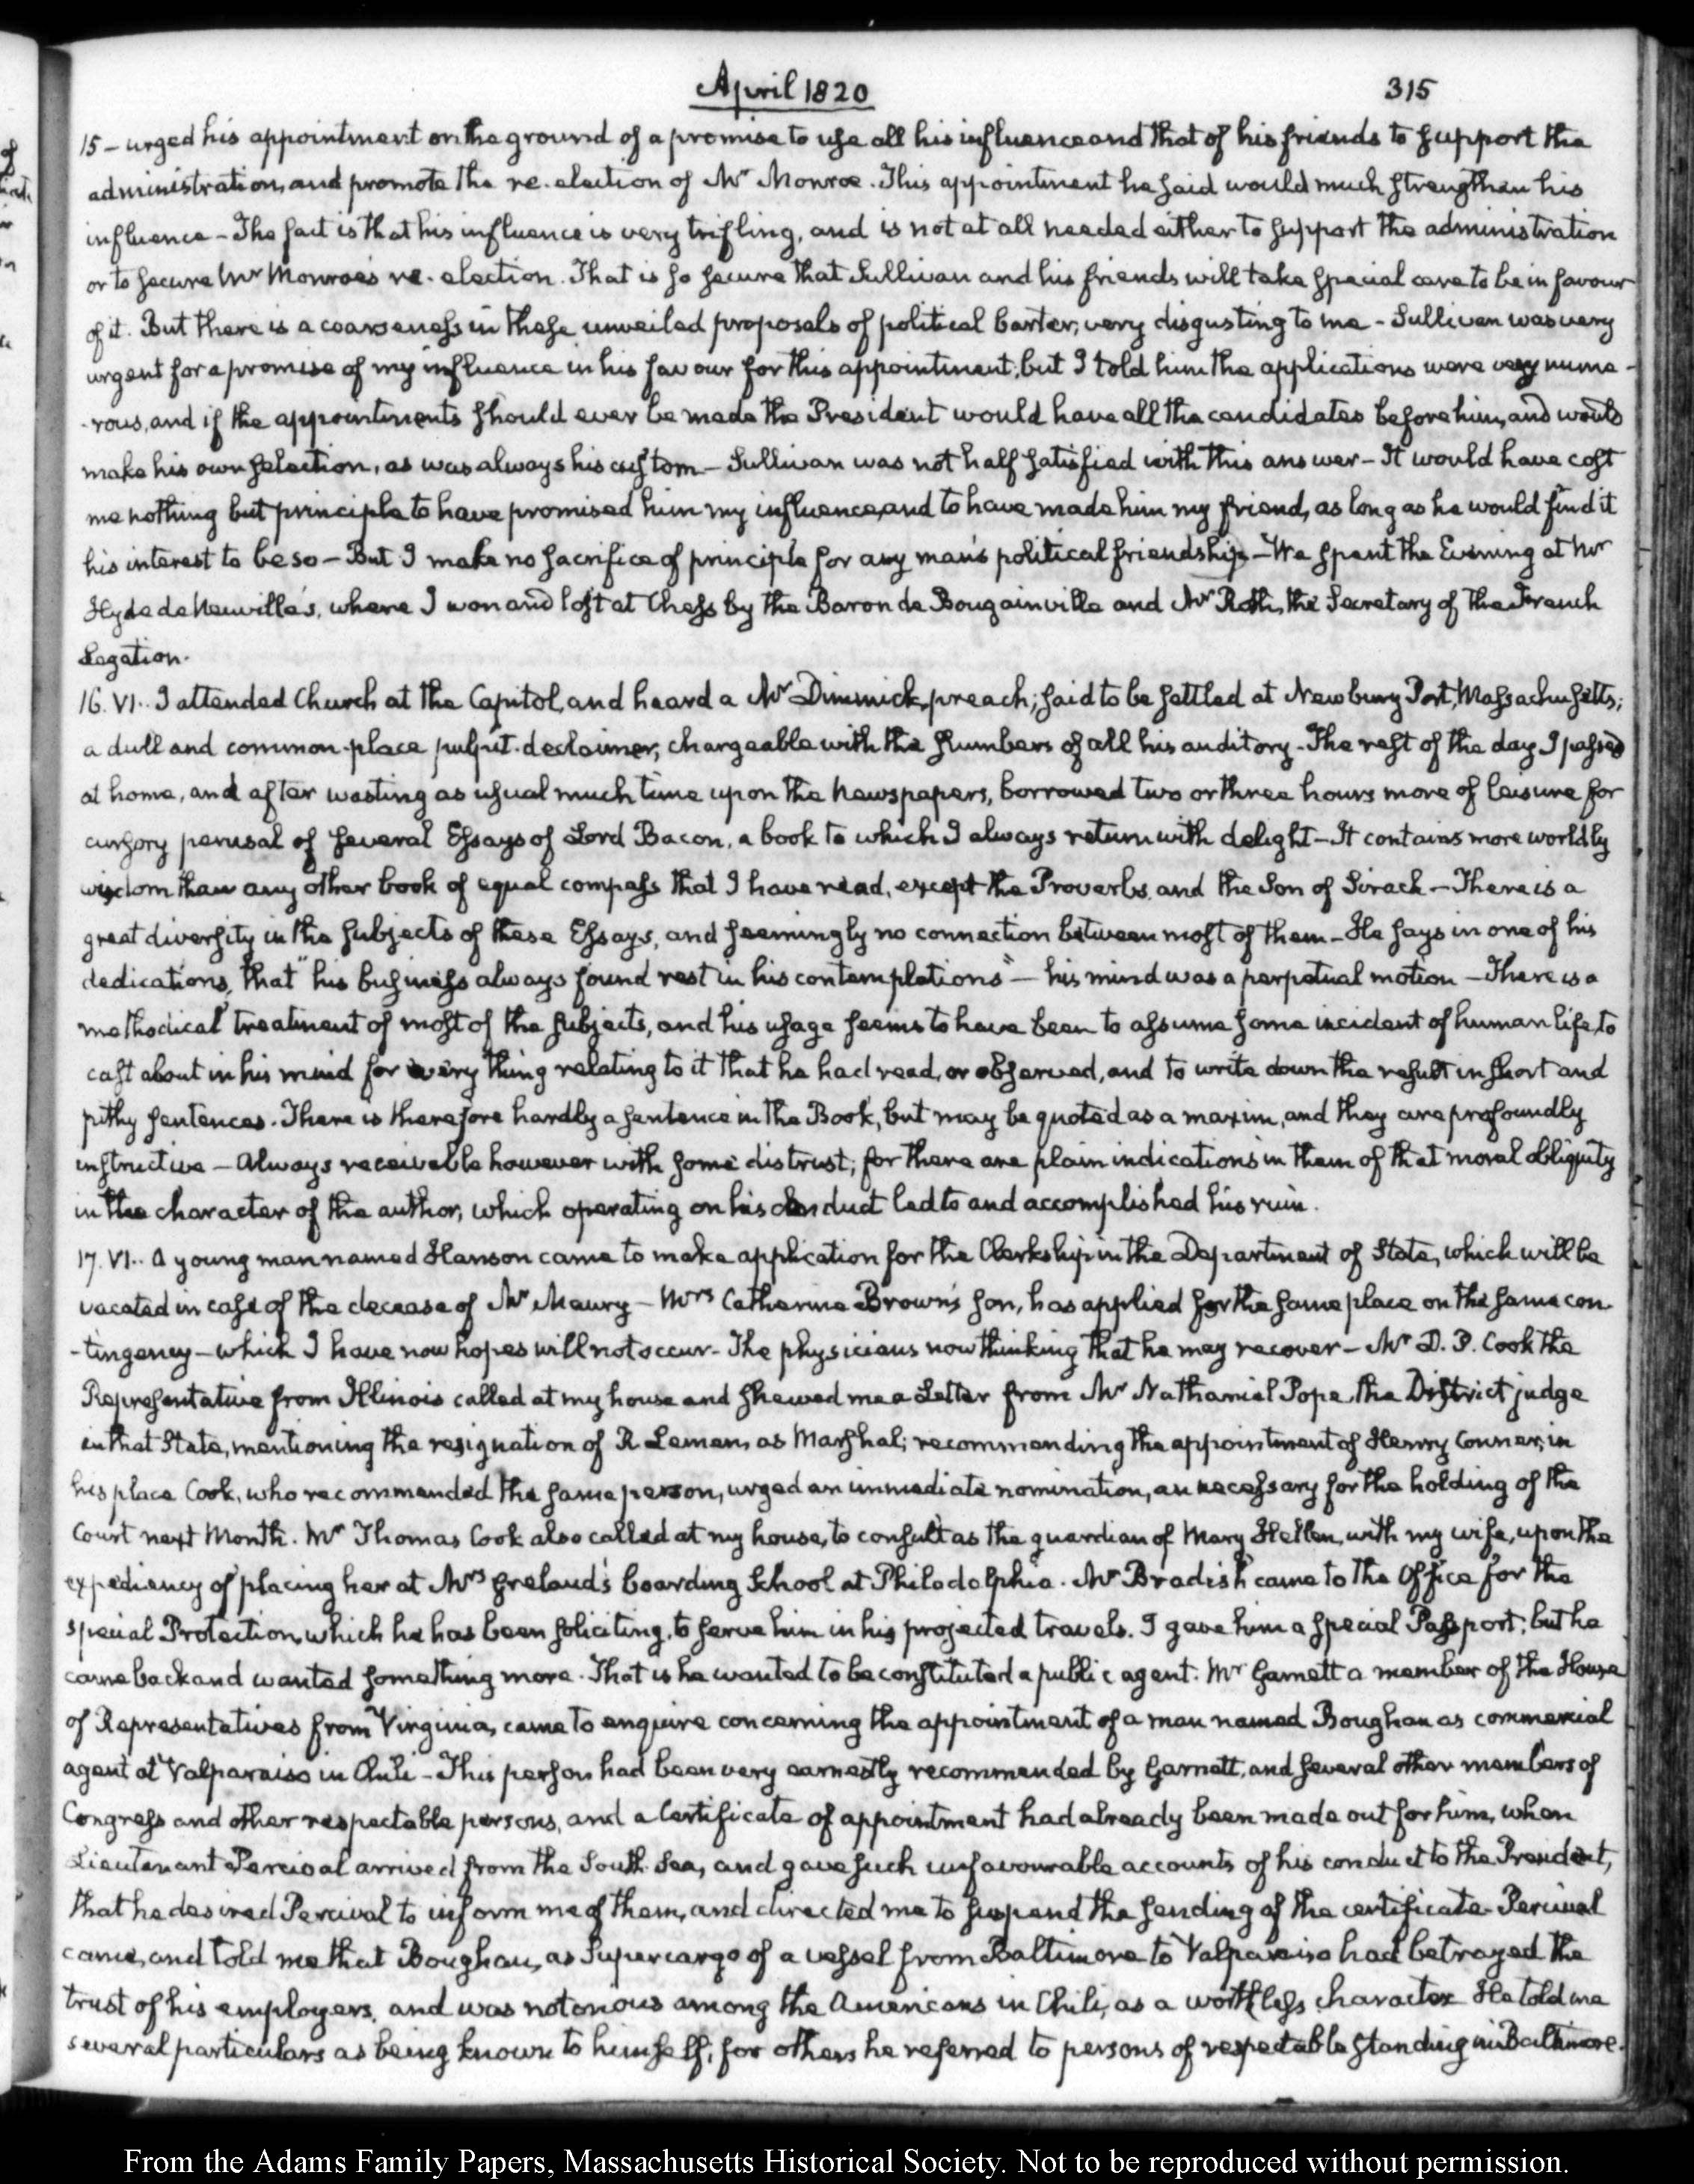 April 1820
315
15 - urged his appointment on the ground of a promise to use all his influence and that of his friends to support the
administration, and promote the re-election of Mr Monroe. This appointment he said would much strengthen his
influence - The fact is that his influence is very trifling, and is not at all needed either to support the administration
or to secure Mr Monroe's re-election. That is so secure that Sullivan and his friends will take special care to be in favour
of it. But there is a coarseness in these unveiled proposals of political barter, very disgusting to me - Sullivan was very
urgent for a promise of my influence in his favour for this appointment; but I told him the applications were very nume-
-rous, and if the appointments should ever be made the President would have all the candidates before him, and would
make his own selection, as was always his custom - Sullivan was not half satisfied with this answer - It would have cost
me nothing but principle to have promised him my influence, and to have made him my friend, as long as he would find it
his interest to be so - But I make no sacrifice of principle for any man's political friendship - We spent the Evening at Mr
Hyde de Neuville's, where I won and lost at Chess by the Baron de Bougainville and Mr Roth, the Secretary of the French
Legation.
16. VI.. I attended Church at the Capitol, and heard a Mr Dimmick, preach; said to be settled at Newbury Port, Massachusetts;
a dull and common-place pulpit-declaimer, chargeable with the slumbers of all his auditory - The rest of the day I passed
at home, and after wasting as usual much time upon the Newspapers, borrowed two or three hours more of leisure for
cursory perusal of several Essays of Lord Bacon, a book to which I always return with delight - It contains more worldly
wisdom than any other book of equal compass that I have read, except the Proverbs, and the Son of Sirach - There is a
great diversity in the subjects of these Essays, and seemingly no connection between most of them - He says in one of his
dedications, that "his business always found rest in his contemplations" - his mind was a perpetual motion - There is a
methodical treatment of most of the subjects, and his usage seems to have been to assume some incident of human life, to
cast about in his mind for every thing relating to it that he had read, or observed, and to write down the result in short and
pithy sentences. There is therefore hardly a sentence in the Book, but may be quoted as a maxim, and they are profoundly
instructive - Always receivable however with some distrust; for there are plain indications in them of that moral obliquity
in the character of the author, which operating on his conduct led to and accomplished his ruin.
17. VI.. A young man named Hanson came to make application for the Clerkship in the Department of State, which will be
vacated in case of the decease of Mr Maury - Mrs Catherine Brown's son, has applied for the same place on the same con-
-tingency - which I have now hopes will not occur - The physicians now thinking that he may recover - Mr D. P. Cook the
Representative from Illinois called at my house and shewed me a Letter from Mr Nathaniel Pope, the District judge
in that State, mentioning the resignation of R Lemen, as Marshal; recommending the appointment of Henry Conner, in
his place Cook, who recommended the same person, urged an immediate nomination, as necessary for the holding of the
Court next Month. Mr Thomas Cook also called at my house, to consult as the guardian of Mary Hellen, with my wife, upon the
expediency of placing her at Mrs Greland's boarding School at Philadelphia. Mr Bradish came to the Office for the
special Protection, which he has been soliciting, to serve him in his projected travels. I gave him a special Passport; but he
came back and wanted something more. That is he wanted to be constituted a public agent. Mr Garnett a member of the House
of Representatives from Virginia, came to enquire concerning the appointment of a man named Boughan as commercial
agent at Valparaiso in Chili - This person had been very earnestly recommended by Garnett, and several other members of
Congress and other respectable persons, and a Certificate of appointment had already been made out for him, when
Lieutenant Percival arrived from the South Sea, and gave such unfavourable accounts of his conduct to the President,
that he desired Percival to inform me of them, and directed me to suspend the sending of the certificate - Percival
came, and told me that Boughan, as Supercargo of a vessel from Baltimore to Valparaiso had betrayed the
trust of his employers, and was notorious among the Americans in Chili, as a worthless character He told me
several particulars as being known to himself, for others he referred to persons of respectable standing in Baltimore.
From the Adams Family Papers, Massachusetts Historical Society. Not to be reproduced without permission.